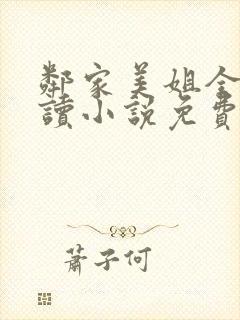 鄰家美姐全
讀小說免費
蕭子何